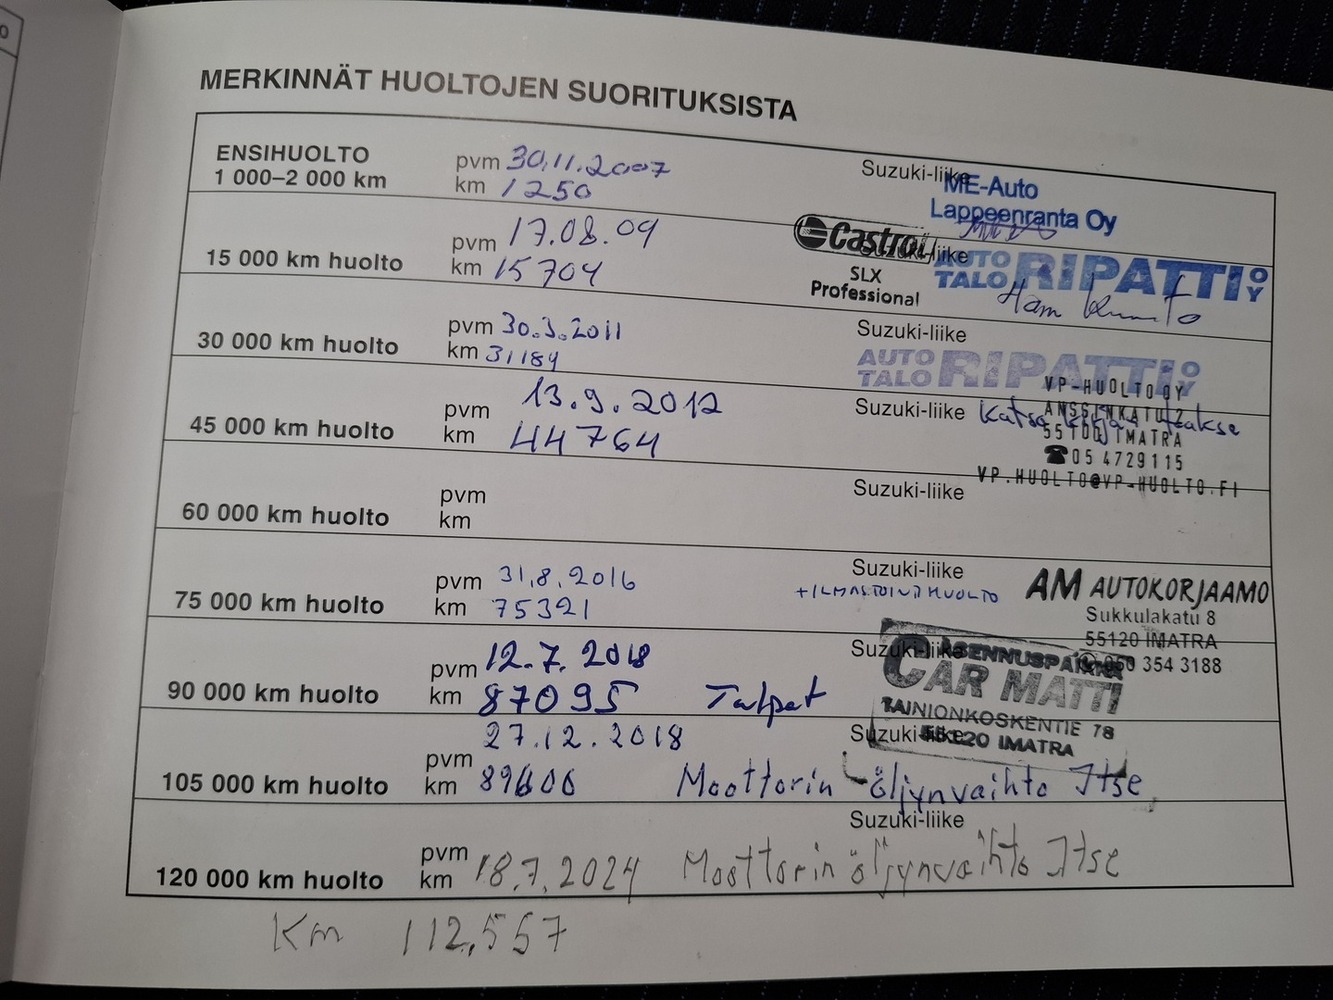 MERKINNÄT HUOLTOJEN SUORITUKSISTA
ENSIHUOLTO
1 000–2 000 km
pvm 30.11.2007
km 1250
Suzuki-liike
ME-Auto
Lappeenranta Oy
15 000 km huolto
pvm 17.08.09
km 15704
Suzuki-liike
Castrol
SLX
Professional
AUTO
TALO RIPATTI OY
30 000 km huolto
pvm 30.3.2011
km 31184
Suzuki-liike
AUTO
TALO RIPATTI OY
45 000 km huolto
pvm 13.9.2012
km 44764
Suzuki-liike
VP-HUOLTO OY
ANSSINKATU 2
55100 IMATRA
☎05 4729115
VP.HUOLTO@VP-HUOLTO.FI
60 000 km huolto
pvm
km
Suzuki-liike
75 000 km huolto
pvm 31.8.2016
km 75321
Suzuki-liike
+ILMASTOINTIHUOLTO
AM AUTOKORJAAMO
Sukkulakatu 8
55120 IMATRA
050 354 3188
90 000 km huolto
pvm 12.7.2018
km 87095
Suzuki-liike
ASENNUSPAIKKA
CAR MATTI
TAINIONKOSKENTIE 78
55120 IMATRA
105 000 km huolto
27.12.2018
pvm
km
Suzuki-liike
Moottorin öljynvaihto Itse
120 000 km huolto
pvm
km 18.7.2024
Suzuki-liike
Moottorin öljynvaihto Itse
Km 112,557